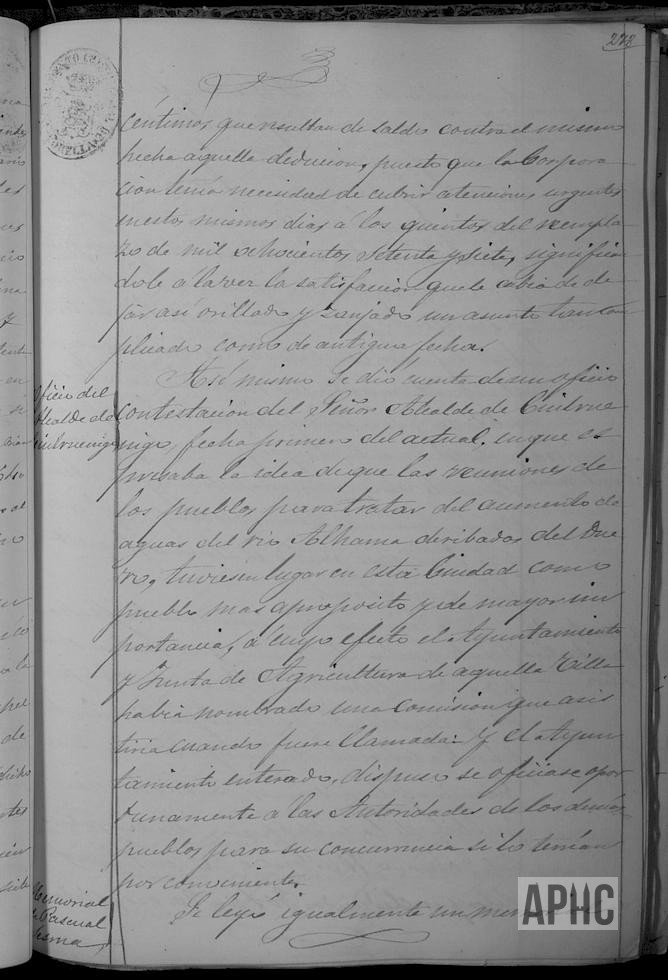 278
céntimos que resultan de saldo contra el mismo
hecha aquella deducion, puesto que la Corpora-
cion tenia necesidad de cubrir atenciones urgentes
en estos mismos dias á los quintos del reempla-
zo de mil ochocientos setenta y siete, significan-
dole á la vez la satisfaccion que le cabia de de-
jar asi orillado y zanjado un asunto tan com-
plicado como de antigua fecha.
Oficio del
Alcalde de
Cintruenigo
Asi mismo se dio cuenta de un oficio
contestacion del Señor Alcalde de Cintrue-
nigo, fecha primero del actual, en que es-
presaba la idea de que las reuniones de
los pueblos para tratar del aumento de
aguas del rio Alhama deribadas del Due-
ro, tuviesen lugar en esta Ciudad como
pueblo mas aproposito y de mayor im-
portancia, á cuyo efecto el Ayuntamiento
y Junta de Agricultura de aquella Villa
habia nombrado una Comision que asis-
tiria cuando fuere llamada: Y el Ayun-
tamiento enterado, dispuso se oficiase opor-
tunamente a las Autoridades de los demas
pueblos para su concurrencia si lo tenian
por conveniente.
Memorial
de Pascual
Sesma
Se leyó igualmente un
APHC